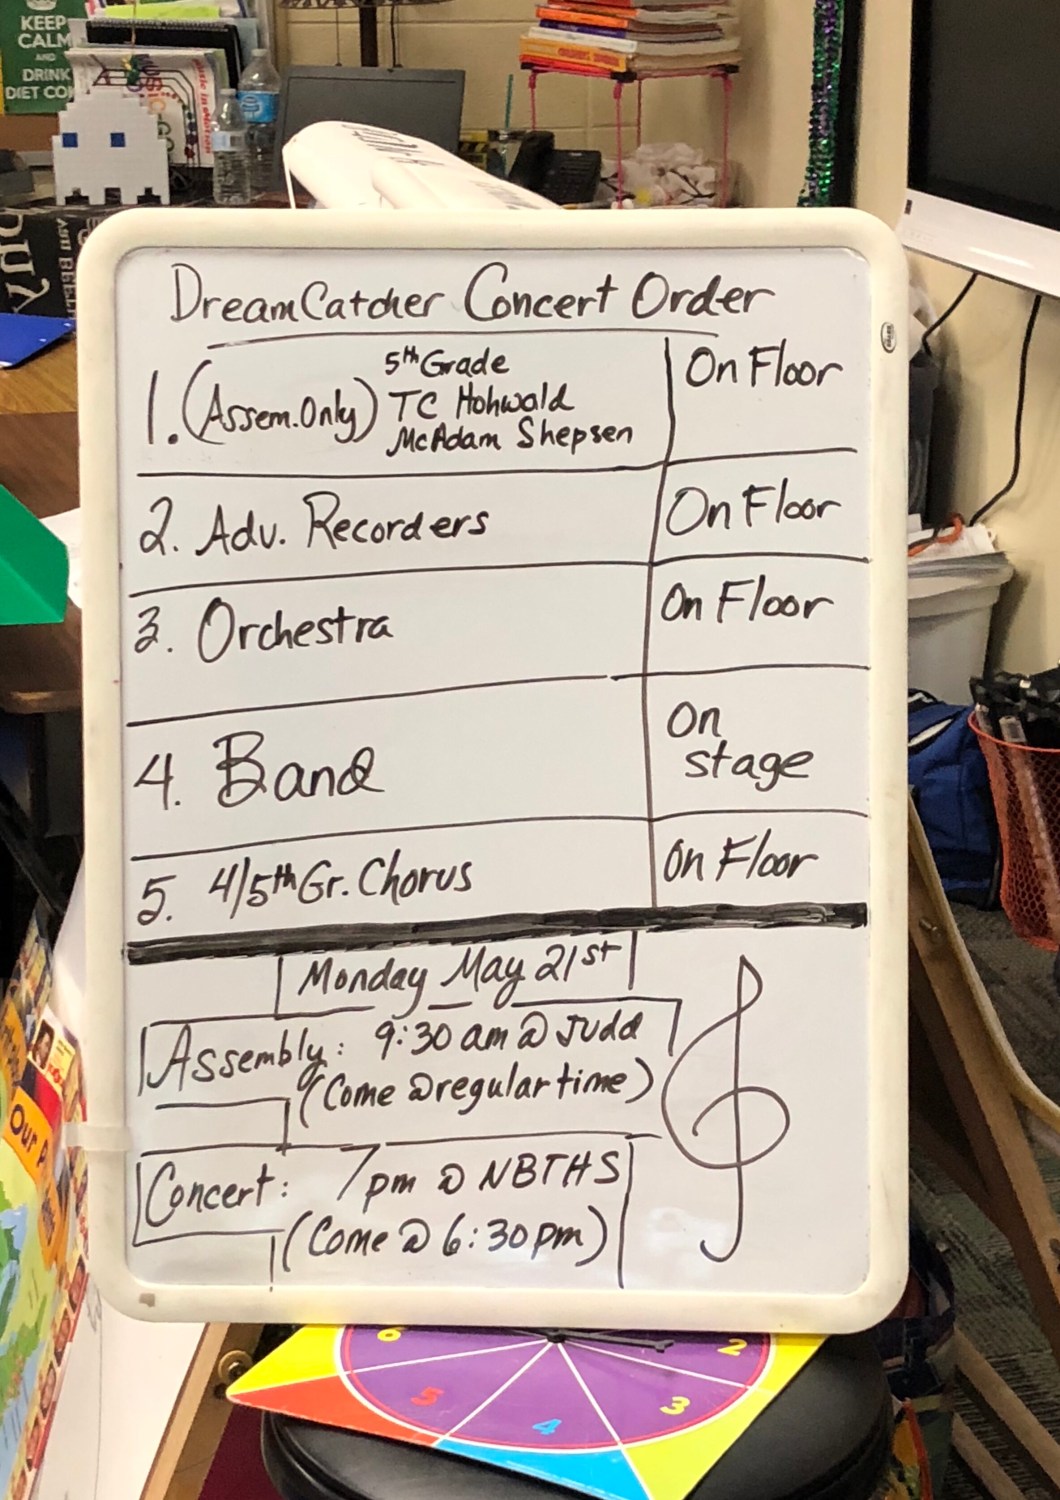 KEEP
CALM
AND
DRINK
DIET COK
DreamCatcher Concert Order
1. (Assem. Only) 5th Grade
TC Hohwald
McAdam Shepsen
On Floor
2. Adv. Recorders
On Floor
3. Orchestra
On Floor
4. Band
On
stage
5. 4/5th Gr. Chorus
On Floor
Monday May 21st
Assembly: 9:30 am @ Judd
(Come @ regular time)
Concert: 7pm @ NBTHS
(Come @ 6:30pm)
Our
6
5
4
3
2